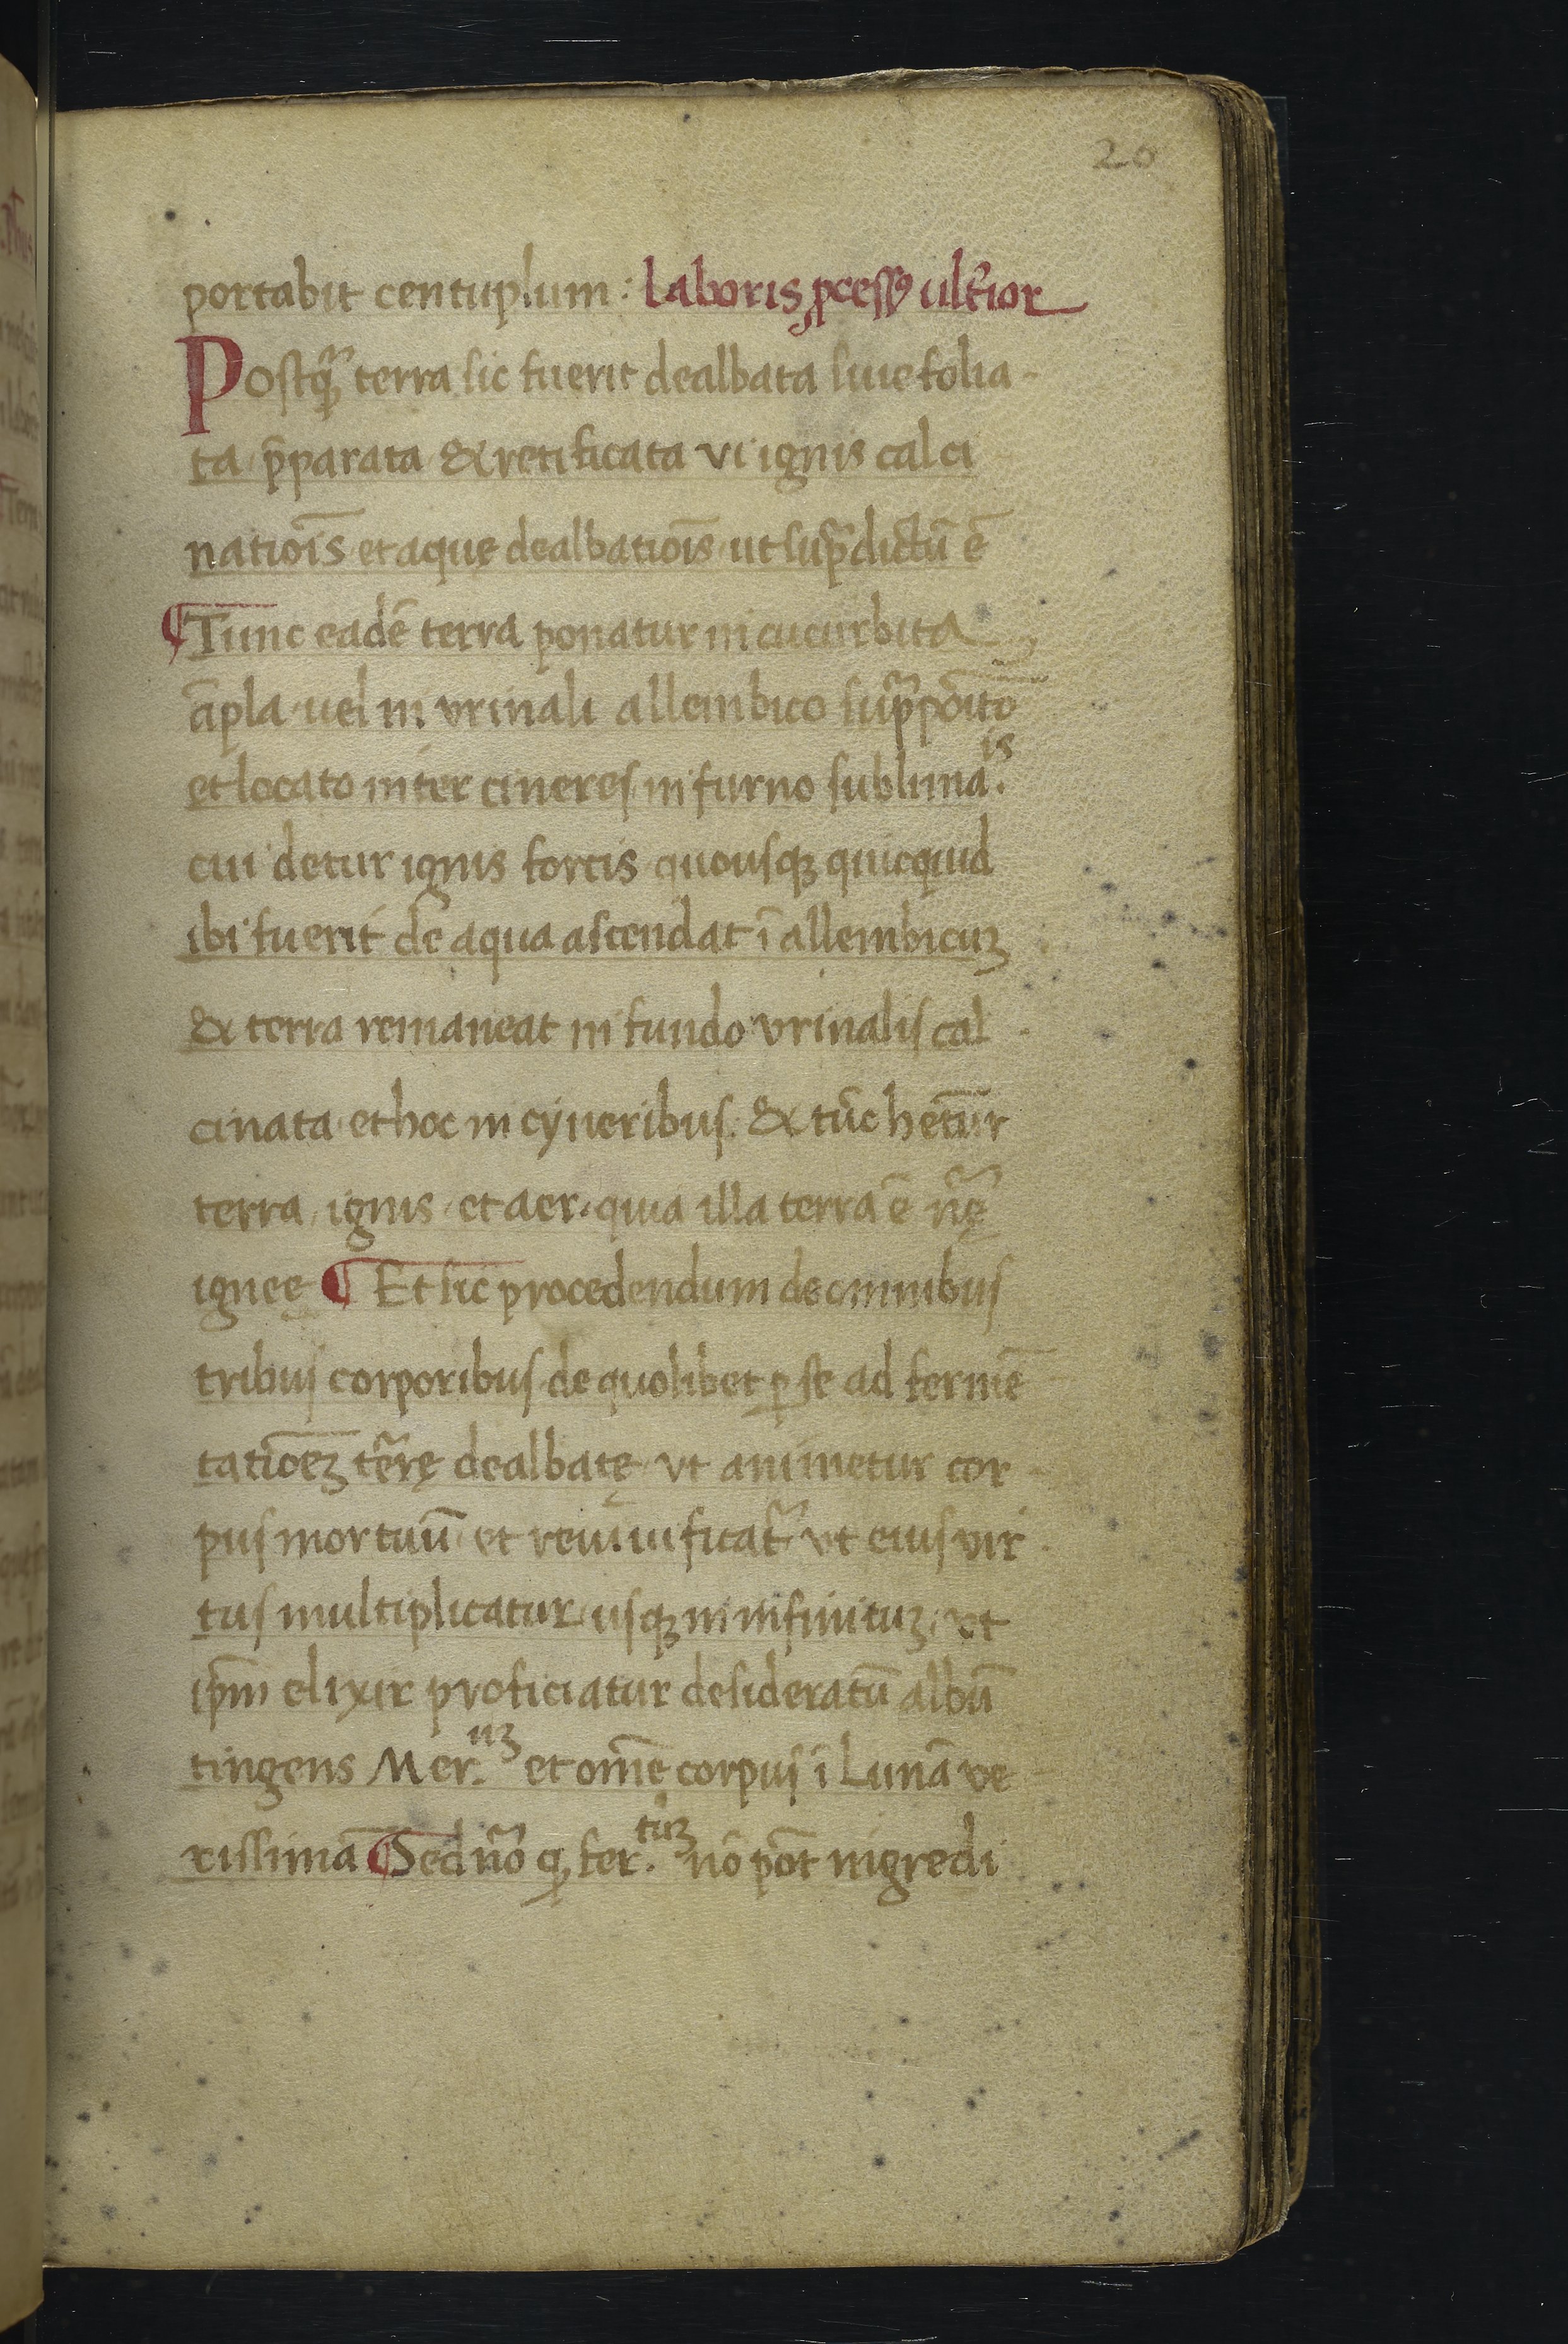 20
portabit centuplum : laboris ꝓcessꝰ ult̃ior
Postq̃ꝫ terra sic fuerit dealbata siue folia-
ta p̃parata & retificata vi ignis calci
natiõis et aquę dealbatiõis ut sup̃dictũ ẽ
¶Tunc eadẽ terra ponatur in cucurbita
ãpla uel in vrinali allembico sup̃põito
et locato inter cineres in furno sublima.is
cui detur ignis fortis quousqꝫ quicquid
ibi fuerit de aqua ascendat ĩ allembicuꝫ
& terra remaneat in fundo vrinalis cal
cinata et hoc in cyneribus. & tũc hẽtur
terra, ignis et aer. quia illa terra ẽ nr̃ę
igneę ¶ Et sic procedendum de omnibus
tribus corporibus de quolibet ꝑ se ad fermẽ
tatiõeꝫ tẽrę dealbatę vt animetur cor-
pus mortuũ et reuiuificat̃ vt eius vir-
tus multiplicatur usqꝫ in infinituꝫ, vt
ip̃m elixir proficiatur desideratũ albũ
tingens Mer.uꝫ et om̃e corpus ĩ Lunã ve-
rissimã ¶Sed nõ ꝙ fer.tuꝫ nõ põt ingredi